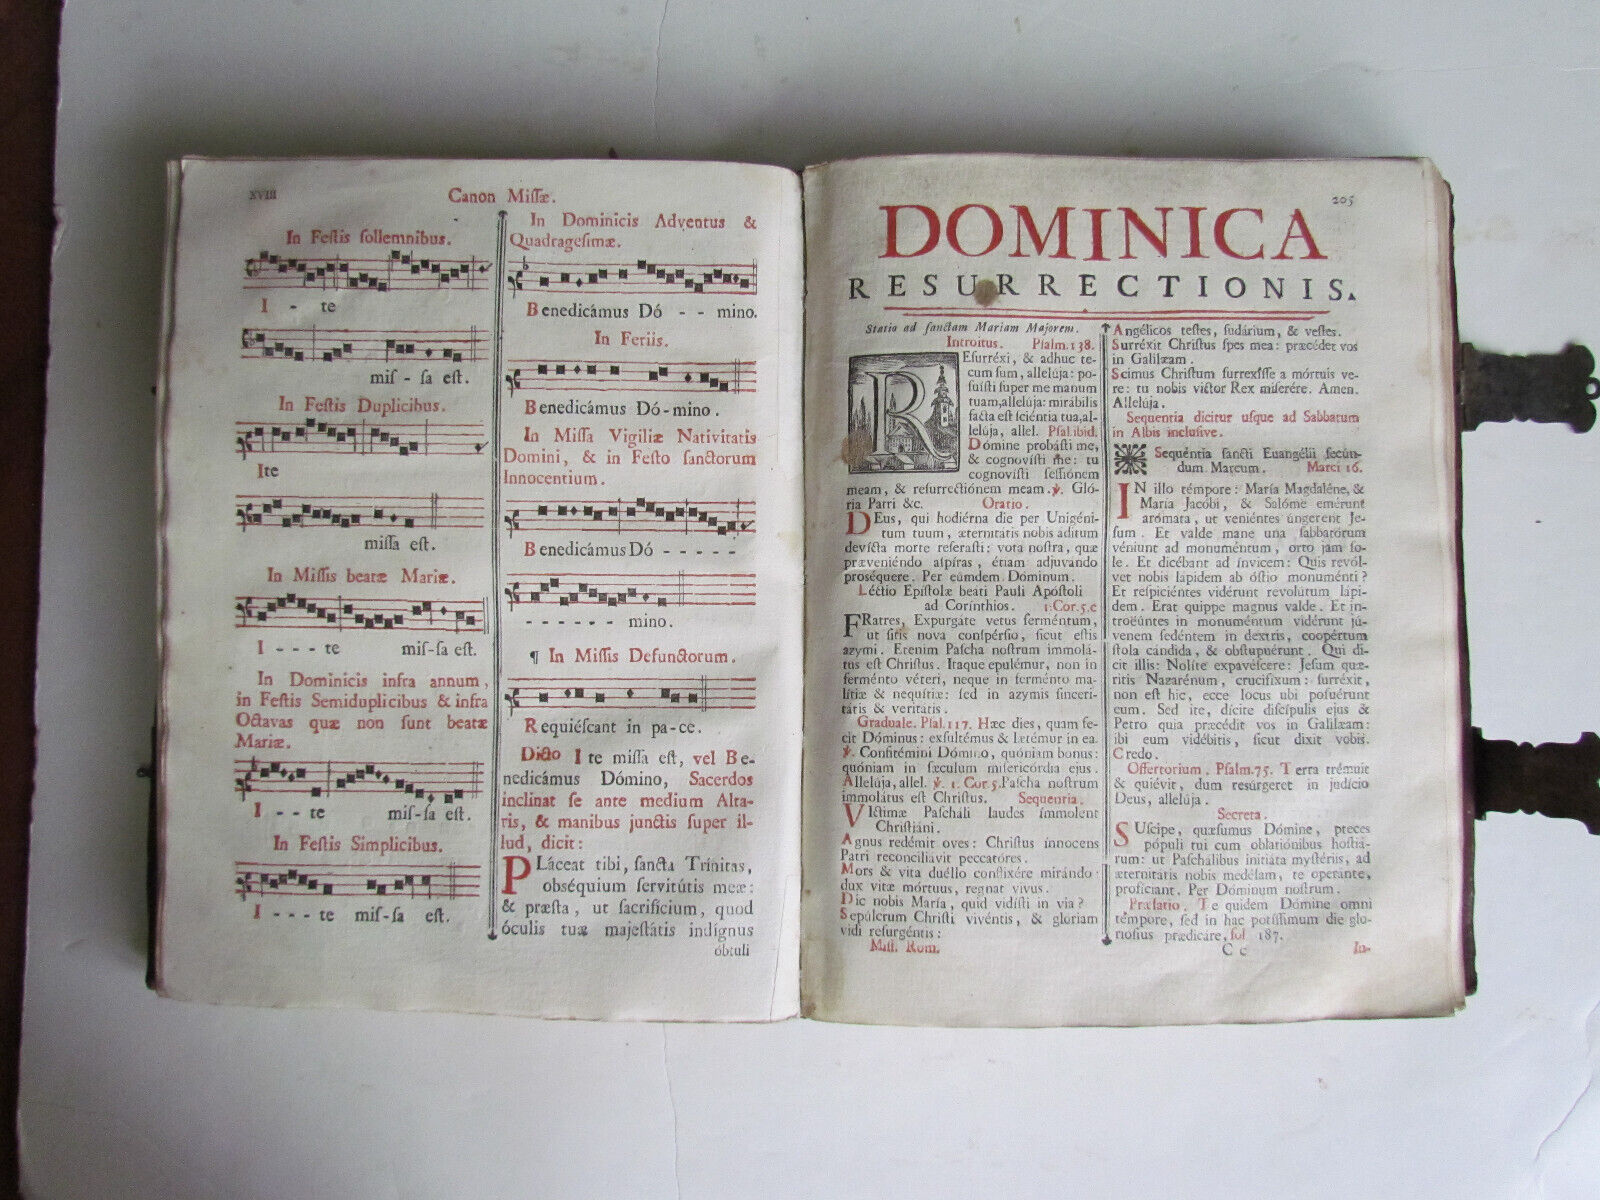 XVIII
Canon Miſſæ.
In Feſtis ſollemnibus.
I - te
miſ - ſa eſt.
In Feſtis Duplicibus.
Ite
miſſa eſt.
In Miſſis beatæ Mariæ.
I - - - te miſ-ſa eſt.
In Dominicis infra annum,
in Feſtis Semiduplicibus & infra
Octavas quæ non ſunt beatæ
Mariæ.
I - - te miſ-ſa eſt.
In Feſtis Simplicibus.
I - - - te miſ-ſa eſt.
In Dominicis Adventus &
Quadrageſimæ.
Benedicámus Dó - - mino.
In Feriis.
Benedicámus Dó-mino.
In Miſſa Vigiliæ Nativitatis
Domini, & in Feſto ſanctorum
Innocentium.
Benedicámus Dó - - - - -
- - - - - - mino.
¶ In Miſſis Defunctorum.
Requiéſcant in pa-ce.
Dicto Ite miſſa eſt, vel Be-
nedicámus Dómino, Sacerdos
inclinat ſe ante medium Alta-
ris, & manibus junctis ſuper il-
lud, dicit:
PLáceat tibi, ſancta Trínitas,
obséquium ſervitútis meæ:
& præſta, ut ſacrifícium, quod
óculis tuæ majeſtátis indígnus
óbtuli
205
DOMINICA
RESURRECTIONIS.
Statio ad ſanctam Mariam Majorem.
Introitus. Pſalm. 138.
REſurréxi, & adhuc te-
cum ſum, allelúja: po-
ſuíſti ſuper me manum
tuam, allelúja: mirábilis
facta eſt ſciéntia tua, al-
lelúja, allel. Pſal. ibid.
Dómine probáſti me,
& cognovíſti me: tu
cognovíſti ſeſſiónem
meam, & reſurrectiónem meam. ℣. Gló-
ria Patri &c. Oratio.
DEus, qui hodiérna die per Unigéni-
tum tuum, æternitátis nobis áditum
devícta morte reſeráſti: vota noſtra, quæ
præveniéndo aſpíras, étiam adjuvándo
proséquere. Per eúmdem Dóminum.
Léctio Epíſtolæ beáti Pauli Apóſtoli
ad Corínthios. 1. Cor. 5. c
FRatres, Expurgáte vetus ferméntum,
ut ſitis nova conſpérſio, ſicut eſtis
azymi. Etenim Paſcha noſtrum immolá-
tus eſt Chriſtus. Itaque epulémur, non in
ferménto véteri, neque in ferménto ma-
lítiæ & nequítiæ: ſed in azymis ſinceri-
tátis & veritátis.
Graduale. Pſal. 117. Hæc dies, quam fe-
cit Dóminus: exſultémus & lætémur in ea.
℣. Confitémini Dómino, quóniam bonus:
quóniam in ſæculum miſericórdia ejus.
Allelúja, allel. ℣. 1. Cor. 5. Paſcha noſtrum
immolátus eſt Chriſtus. Sequentia.
VIctimæ Paſcháli laudes ímmolent
Chriſtiáni.
Agnus redémit oves: Chriſtus ínnocens
Patri reconciliávit peccatóres.
Mors & vita duéllo conflixére mirándo:
dux vitæ mórtuus, regnat vivus.
Dic nobis María, quid vidíſti in via?
Sepúlcrum Chriſti vivéntis, & glóriam
vidi reſurgéntis:
Miſſ. Rom.
Angélicos teſtes, ſudárium, & veſtes.
Surréxit Chriſtus ſpes mea: præcédet vos
in Galilæam.
Scimus Chriſtum ſurrexíſſe a mórtuis ve-
re: tu nobis victor Rex miſerére. Amen.
Allelúja.
Sequentia dicitur uſque ad Sabbatum
in Albis incluſive.
Sequéntia ſancti Euangélii ſecún-
dum Marcum. Marci 16.
IN illo témpore: María Magdaléne, &
María Jacóbi, & Salóme emérunt
arómata, ut veniéntes úngerent Je-
ſum. Et valde mane una ſabbatórum
véniunt ad monuméntum, orto jam ſo-
le. Et dicébant ad ínvicem: Quis revól-
vet nobis lápidem ab óſtio monuménti?
Et reſpiciéntes vidérunt revolútum lápi-
dem. Erat quippe magnus valde. Et in-
troëúntes in monuméntum vidérunt jú-
venem ſedéntem in dextris, coopértum
ſtola cándida, & obſtupuérunt. Qui di-
cit illis: Nolíte expavéſcere: Jeſum quæ-
ritis Nazarénum, crucifíxum: ſurréxit,
non eſt hic, ecce locus ubi poſuérunt
eum. Sed ite, dícite diſcípulis ejus &
Petro quia præcédit vos in Galilæam:
ibi eum vidébitis, ſicut dixit vobis.
Credo.
Offertorium. Pſalm. 75. Terra trémuit
& quiévit, dum reſúrgeret in judício
Deus, allelúja.
Secreta.
SUſcipe, quæſumus Dómine, preces
pópuli tui cum oblatiónibus hoſtiá-
rum: ut Paſchálibus initiáta myſtériis, ad
æternitátis nobis medélam, te operánte,
profíciant. Per Dóminum noſtrum.
Præfatio. Te quidem Dómine omni
témpore, ſed in hac potíſſimum die glo-
rióſius prædicáre, fol 187.
C c In-